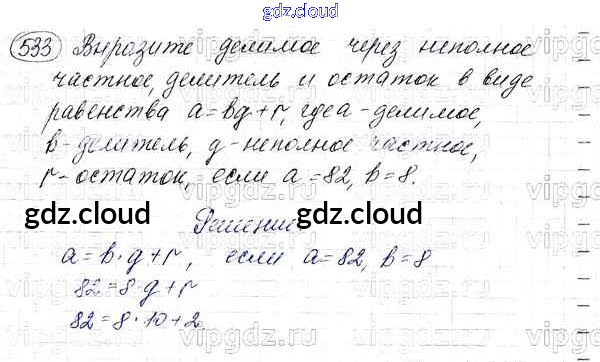 gdz.cloud
533 Выразите делимое через неполное
частное, делитель и остаток в виде
равенства a=bq+r, где a-делимое,
b-делитель, q-неполное частное,
r-остаток, если a=82, b=8.
gdz.cloud gdz.cloud
Решение
a=b·q+r, если a=82, b=8
82=8·q+r
82=8·10+2